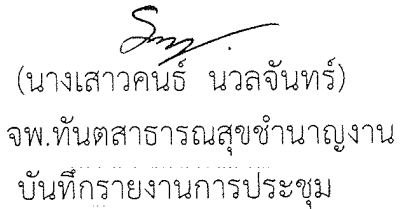 (นางเสาวคนธ์ นวลจันทร์)
จพ.ทันตสาธารณสุขชำนาญงาน
บันทึกรายงานการประชุม